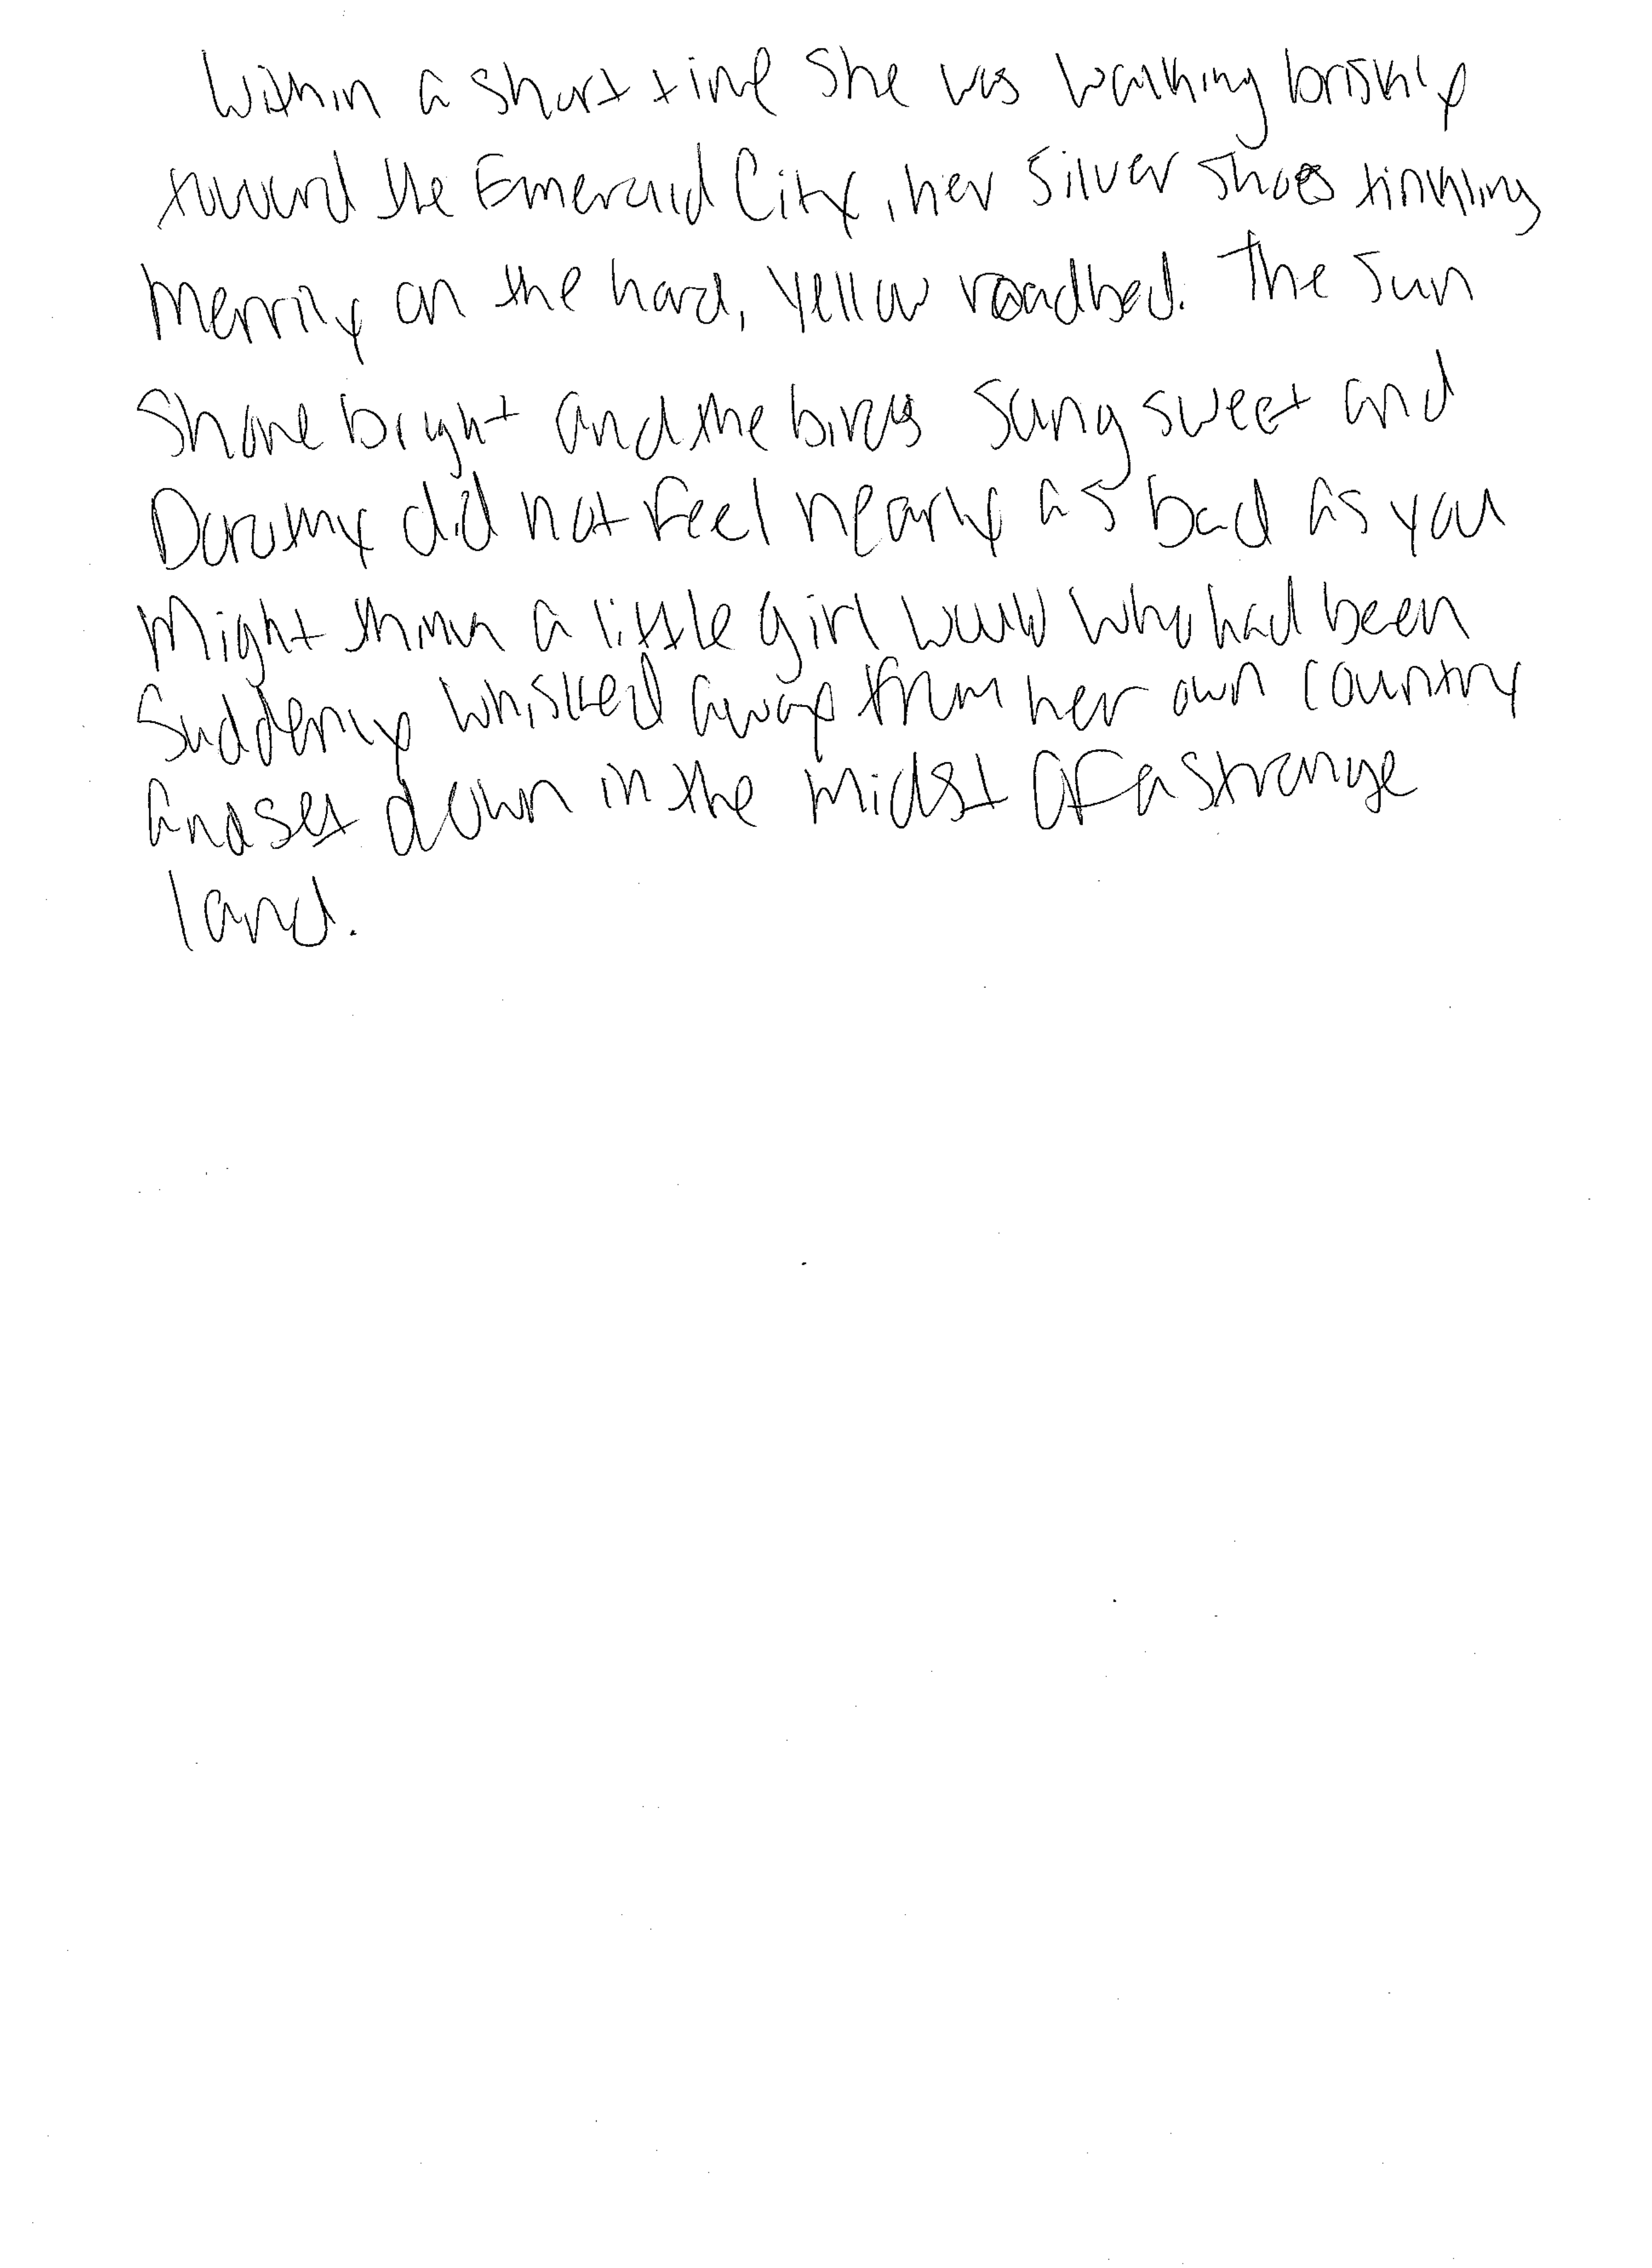 Within a short time she was walking briskly
toward the Emerald City, her Silver Shoes tinkling
merrily on the hard, yellow roadbed. The sun
shone bright and the birds sang sweet and
Dorothy did not feel nearly as bad as you
might think a little girl would who had been
suddenly whisked away from her own country
and set down in the midst of a strange
land.